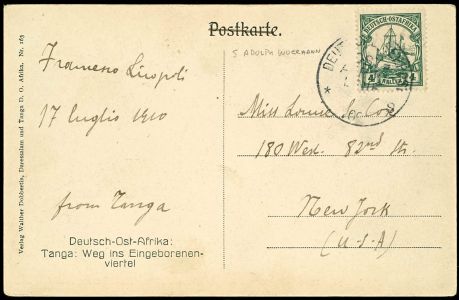 Postkarte.
S ADOLPH WOERMANN
DEUTSCH-OSTAFRIKA
4 HELLER 4
DEUT
Francesco
17 luglio 1910
from Tanga
Miss Louise
180 West. 82nd St.
New York
(U.S.A)
Deutsch-Ost-Afrika:
Tanga: Weg ins Eingeborenen-
viertel
Verlag Walther Dobbertin, Daressalam und Tanga D. O. Afrika. Nr. 263